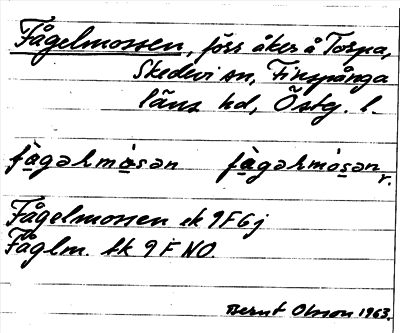 Fågelmossen, förr åker å Torpa,
Skedevi sn, Finspånga
läns hd, Östg. l.
fàgəlmòsən fàgəlmòsən r.
Fågelmossen ek 9F6j
Fåglm. tk 9F NO.
Bernt Olsson 1963.